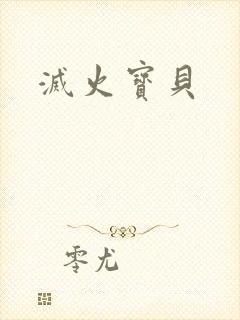 滅火寶貝
零尤